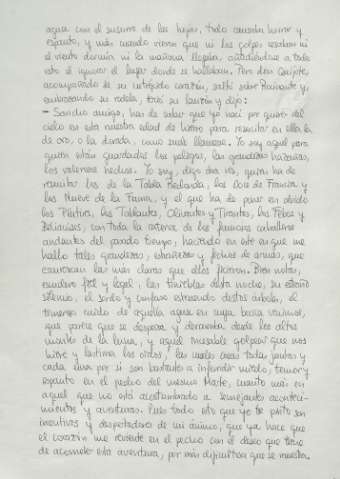 agua con el susurro de las hojas, todo causaba horror y
espanto, y más cuando vieron que ni los golpes cesaban ni
el viento dormía ni la mañana llegaba, añadiéndose a todo
esto el ignorar el lugar donde se hallaban. Pero don Quijote,
acompañado de su intrépido corazón, saltó sobre Rocinante y,
embrazando su rodela, terció su lanzón y dijo:
- Sancho amigo, has de saber que yo nací por querer del
cielo en esta nuestra edad de hierro para resucitar en ella la
de oro, o la dorada, como suele llamarse. Yo soy aquel para
quien están guardados los peligros, las grandes hazañas,
los valerosos hechos. Yo soy, digo otra vez, quien ha de
resucitar los de la Tabla Redonda, los Doce de Francia y
los Nueve de la Fama, y el que ha de poner en olvido
los Platires, los Tablantes, Olivantes y Tirantes, los Febos y
Belianises, con toda la caterva de los famosos caballeros
andantes del pasado tiempo, haciendo en este en que me
hallo tales grandezas, extrañezas y fechos de armas, que
escurezcan las más claras que ellos ficieron. Bien notas,
escudero fiel y legal, las tinieblas desta noche, su extraño
silencio, el sordo y confuso estruendo destos árboles, el
temeroso ruido de aquella agua en cuya busca venimos,
que parece que se despeña y derrumba desde los altos
montes de la luna, y aquel incesable golpear que nos
hiere y lastima los oídos, las cuales cosas todas juntas y
cada una por sí son bastantes a infundir miedo, temor y
espanto en el pecho del mesmo Marte, cuanto más en
aquel que no está acostumbrado a semejantes aconteci-
mientos y aventuras. Pues todo esto que yo te pinto son
incentivos y despertadores de mi ánimo, que ya hace que
el corazón me reviente en el pecho con el deseo que tiene
de acometer esta aventura, por más dificultosa que se muestra.